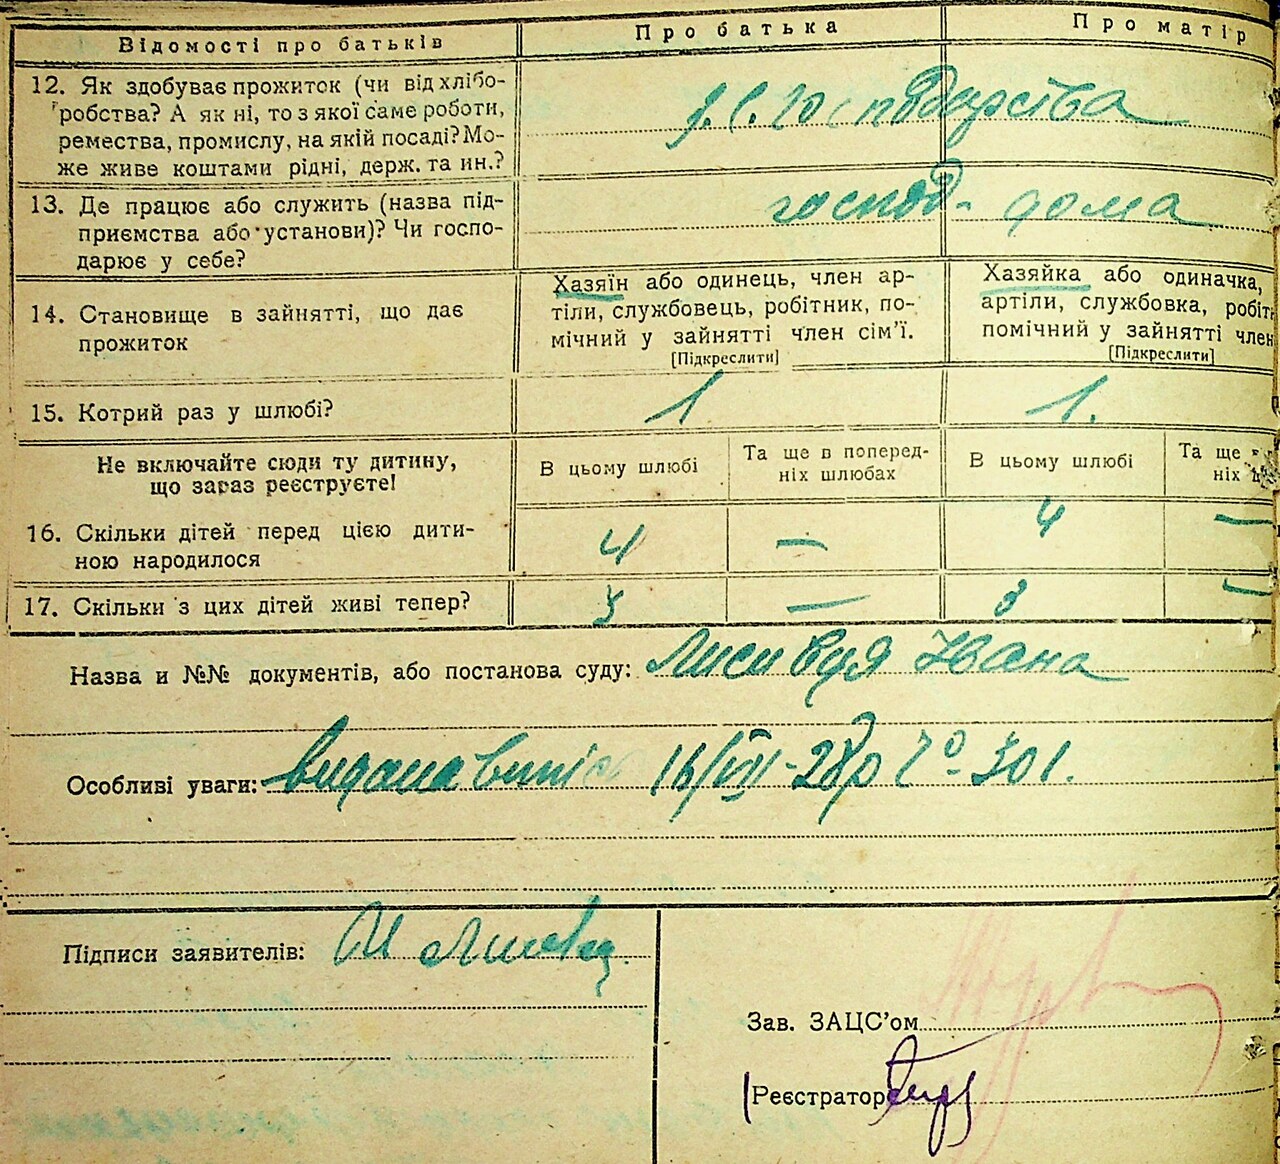 Відомості про батьків
Про батька
Про матір
12. Як здобуває прожиток (чи від хлібо-
робства? А як ні, то з якої саме роботи,
ремества, промислу, на якій посаді? Мо-
же живе коштами рідні, держ. та ин.?
господарства
13. Де працює або служить (назва під-
приємства або установи)? Чи госпо-
дарює у себе?
господ. дома
14. Становище в зайнятті, що дає
прожиток
Хазяїн або одинець, член ар-
тіли, службовець, робітник, по-
мічний у зайнятті член сім'ї.
[Підкреслити]
Хазяйка або одиначка,
артіли, службовка, робіт
помічний у зайнятті член
[Підкреслити]
15. Котрий раз у шлюбі?
1
1.
Не включайте сюди ту дитину,
що зараз реєструєте!
В цьому шлюбі
Та ще в поперед-
ніх шлюбах
В цьому шлюбі
Та ще
ніх
16. Скільки дітей перед цією дити-
ною народилося
4 — 4 —
17. Скільки з цих дітей живі тепер?
3 — 3 —
Назва и №№ документів, або постанова суду: Лисивця Івана
Особливі уваги: видана випис 16/VII-28р № 301.
Підписи заявителів: И Лисивец
Зав. ЗАЦС'ом
Реєстратор